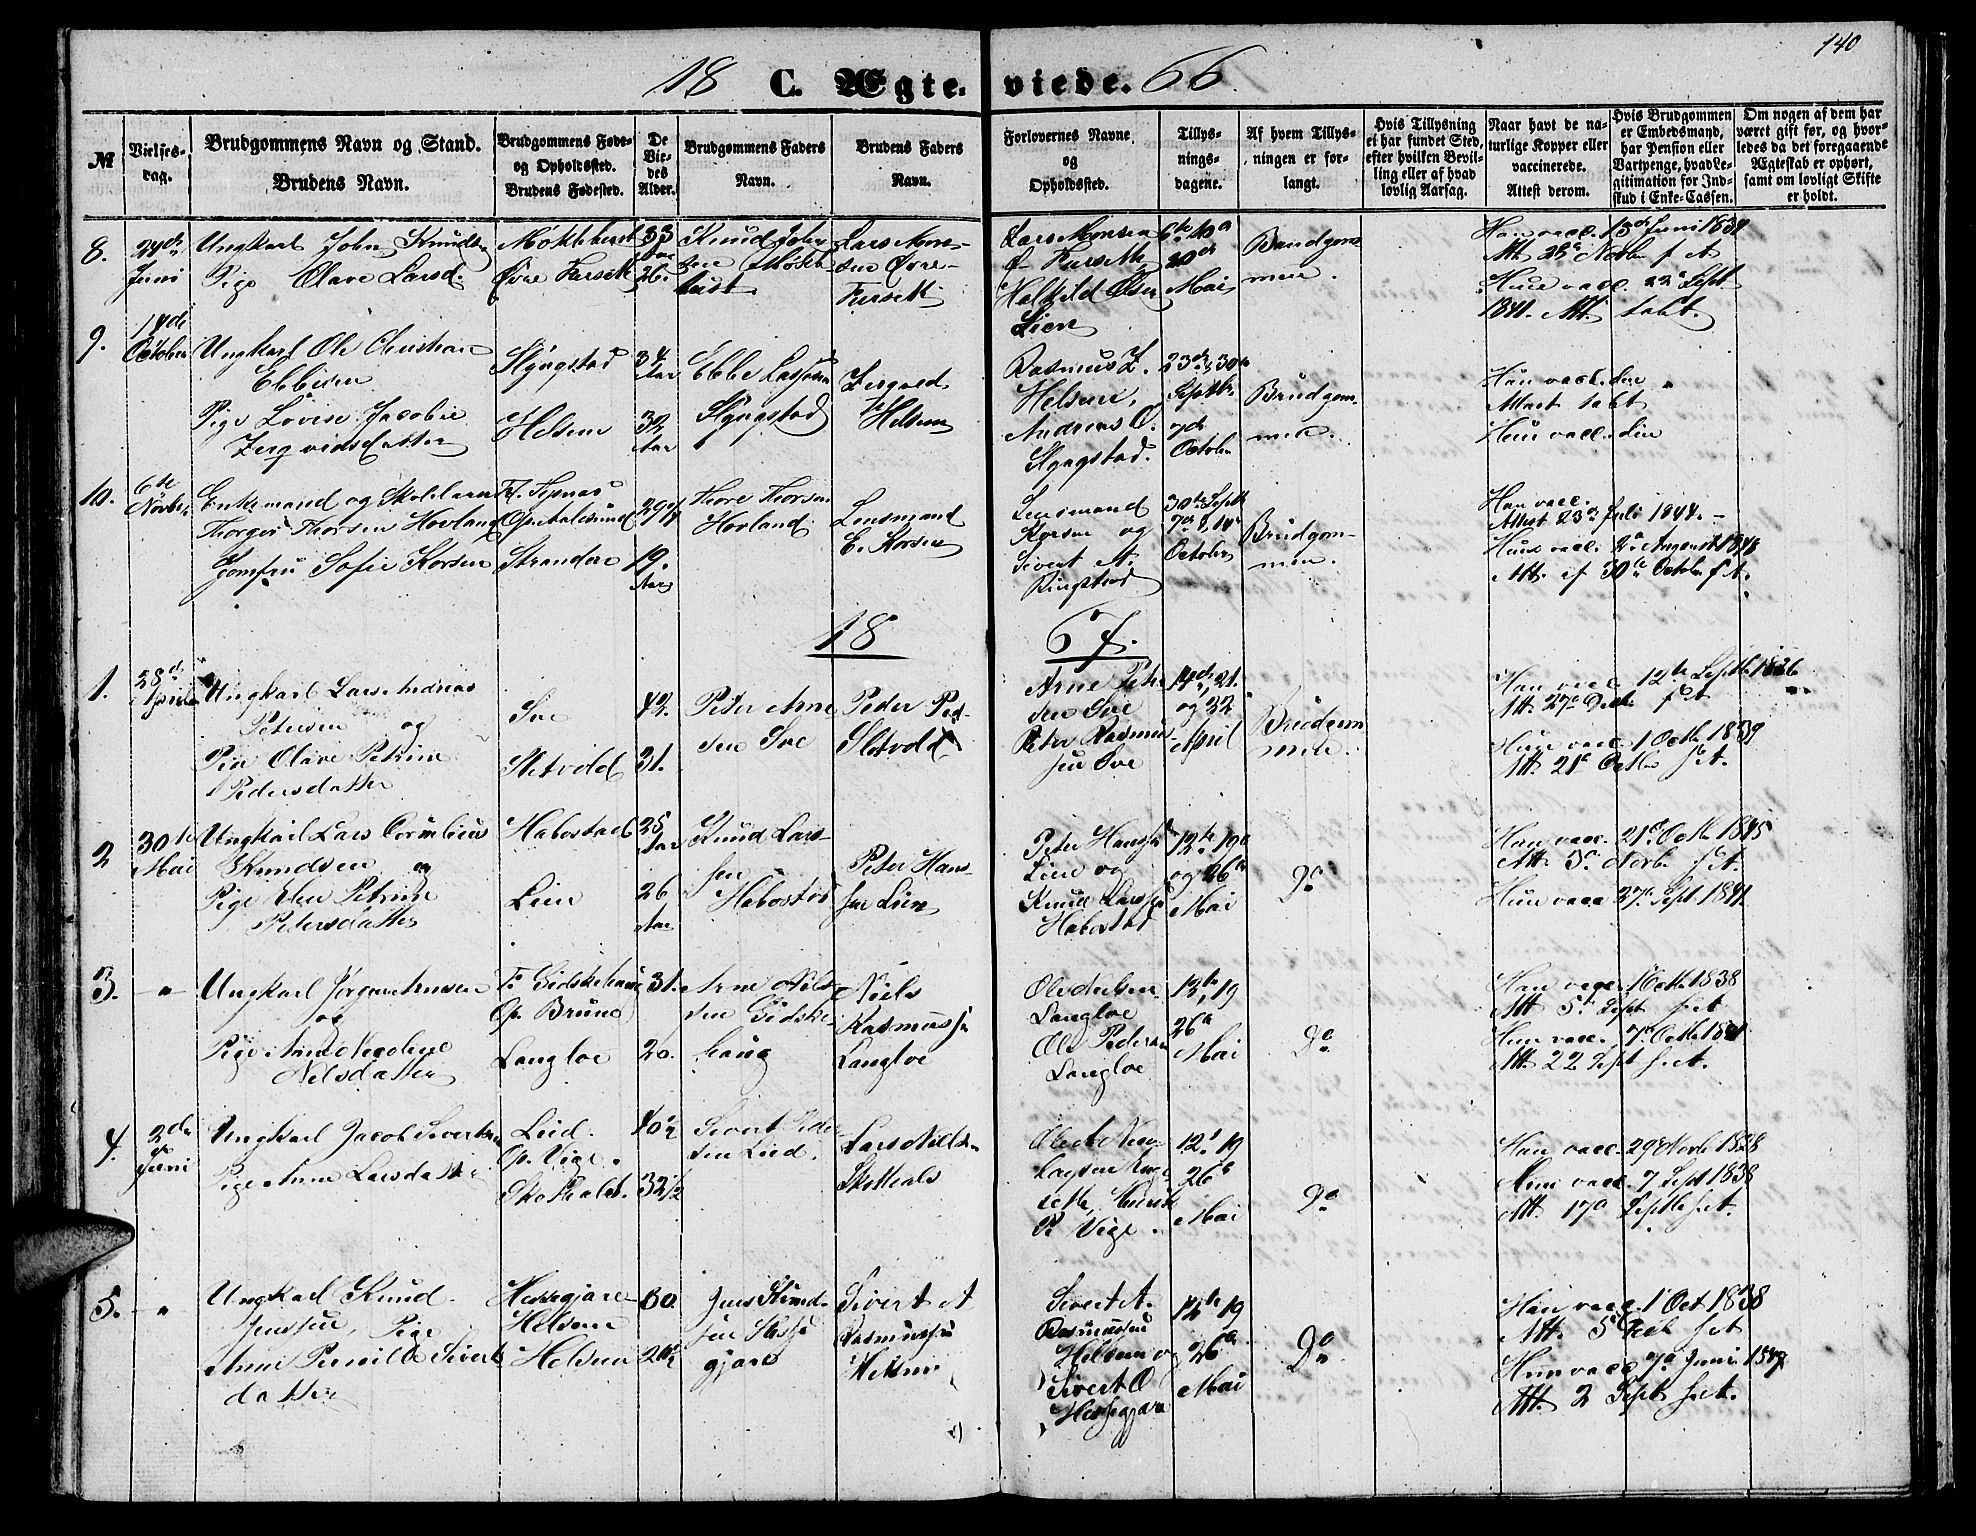 140
18 C. Ægteviede. 66.
№
Vielses-
dag.
Brudgommens Navn og Stand.
Brudens Navn.
Brudgommens Føde-
og Opholdssted.
Brudens Fødested.
De
Vie-
des
Alder.
Brudgommens Faders
Navn.
Brudens Faders
Navn.
Forlovernes Navne
og
Opholdssted.
Tillys-
nings-
dagene.
Af hvem Tillys-
ningen er for-
langt.
Hvis Tillysning
ei har fundet Sted,
efter hvilken Bevil-
ling eller af hvad
lovlig Aarsag.
Naar havt de na-
turlige Kopper eller
vaccinerede.
Attest derom.
Hvis Brudgommen
er Embedsmand,
har Pension eller
Vartpenge, hvad Le-
gitimation for Ind-
skud i Enke-Cassen.
Om nogen af dem har
været gift før, og hvor-
ledes da det foregaaende
Ægteskab er ophørt,
samt om lovligt Skifte
er holdt.
8.
24de
Juni
Ungkarl John Knudsen
Pige Olave Larsd.
Øvre Fursett
33
26.
Knud John
Lars Mon-
sen Øvre-
Fursett
Lars Monsen
Ø Fursett
Halkild Olsen
Lien
6te 10a
20de
Mai
Brudgom-
men.
Han vacc. 13de Juni 1839
Att. 28a Novbr f. A
Hun vacc. 22a Sept
1841. Att. tabt.
9.
14de
October
Ungkarl Ole Christian
Ebbesen
Pige Lovise Jacobie
datter
Slyngstad
Helsem
34
Aar
32
Aar
Ebbe Lassesen
Slyngstad
Helsem
Rasmus
Helsem,
Andreas O.
Slyngstad.
23de, 30te
Septbr
7de
October
Brudgom-
men.
Han vacc. din
Attest tabt
Hun vacc. din
10.
6te
Novbr
Enkemand og Skolelærer
Thorger Thorsen Hovland
Jomfru Sofie Korsen
Strandøre
29
19.
Aar
Thore Thorsen
Hovland
Lensmand
E. Korsen
Lensmand
Korsen og
Sivert A.
Ringstad
30te Septb
7de, 14e
October
Brudgom-
men.
Han vacc.
Attest 23de Juli 1844. -
Hun vacc. 2de August 1848
Att. af 30te Octobr f. A.
18 67.
1.
28de
April
Ungkarl Lars Andreas
Petersen og
Pige Olave Petrine
Pedersdatter
Sve
Sletvold
42.
31.
Peter Arne
sen Sve
Peder Ped-
Sletvold
Arne Peter
sen Sve
Peter Rasmus
sen Sve
14de, 21.
og 22
April
Brudgom
men.
Han vacc. 12te Septb 1826
Att. 27de Decbr f. A
Hun vacc. 1 Octb 1839
Att. 21de Octbr f. A.
2
30te
Mai
Ungkarl Lars Cornelius
Knudsen og
Pige Petrine
Petersdatter
Habostad
Lien
25
Aar
26
Aar
Knud Lars-
sen
Habostad
Peter Hans-
sen Lien
Peter Hanssen
Lien og
Knud Larssen
Habostad
12te, 19de
og 26de
Mai
Do
Han vacc. 21de Octb 1845
Att. 3de Novb. f. A.
Hun vacc. 27de Sept. 1841.
3.
- " -
Ungkarl Jørgen Arnesen
og
Pige Anne Nicoline
Nilsdatter
F. Gidskehaug
Op. Brune
Langloe
31.
20.
Arne Nils-
sen Gidske-
haug
Niels
Rasmussen
Langloe
Ole Nielsen
Langloe
Ole Pedersen
Langloe
12te, 19
26de
Mai
Do
Han vacc. 1 Octb. 1838
Att 5te Sept f. A
Hun vacc. 7de Octb 18
Att. 22 Sept f. A.
4.
2de
Juni
Ungkarl Jacob Sivertsen
Pige Anne Larsdatter
Lied.
Op. Vige.
Skotteals.
40½
32½
Sivert
sen Lied.
Lars Nilssen
Skotteals
sett, Henrik
P. Vige.
12te 19
26de
Mai
Do
Han vacc. 29de Novb 1828
Hun vacc. 7 Sept 1838
Att. 17de Septb f. A.
5.
- " -
Ungkarl Knud
Jenssen, Pige
Anne Pernille Siverts
datter
Hessegjære
Helsem
Helsem
30.
20½
Jens Knud-
sen Hesse
gjære
Sivert A
Rasmussen
Helsem
Sivert A.
Rasmussen
Helsem og
Sivert O
Hessegjære
12te 19
26de
Mai
Do
Han vacc. 1 Oct 1838
Att. 5 Sept f. A
Hun vacc. 7de Juni 1847
Att. 2 Sept f. A.